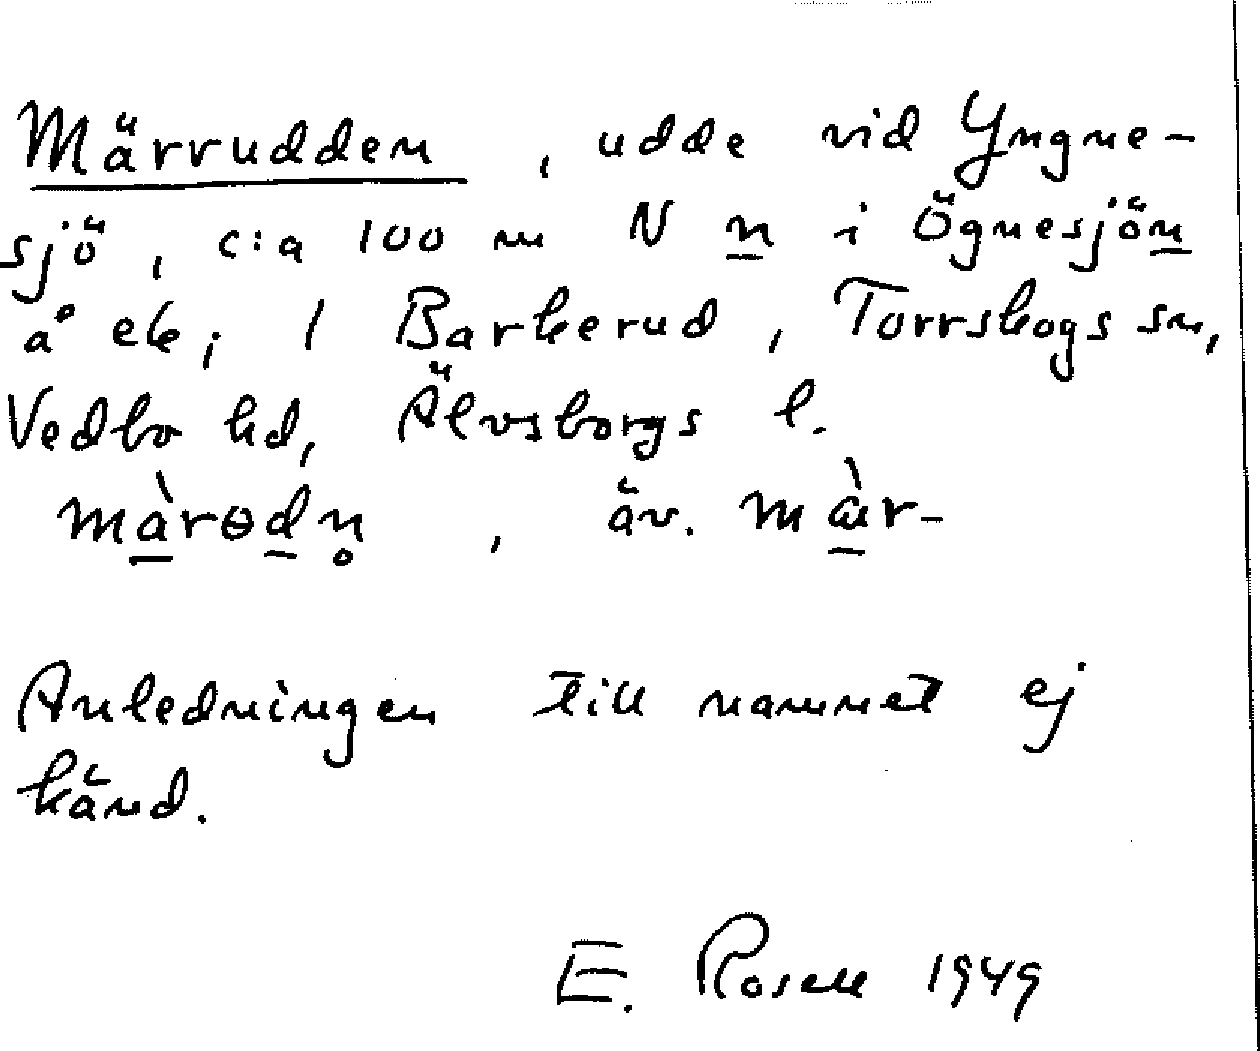 Märrudden, udde vid Yngne-
sjö, c:a 100 m N n i Ögnesjön
å ek; / Barkerud, Torrskogs sn,
Vedbo hd, Älvsborgs l.
màrɵdn̥, äv. mæ̀r-
Anledningen till namnet ej
känd.
E. Rosell 1949